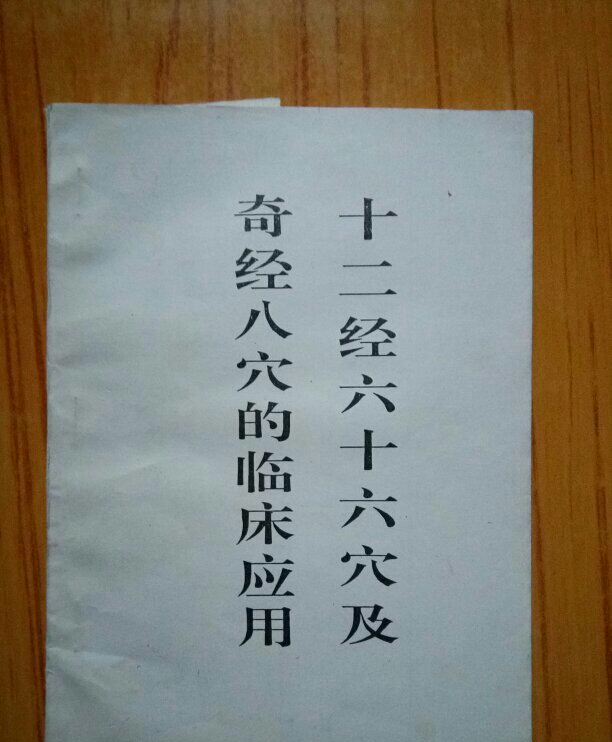 十二经六十六穴及
奇经八穴的临床应用